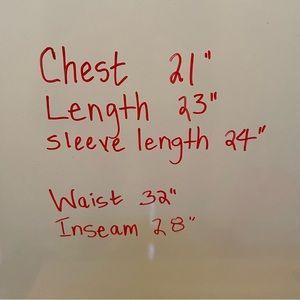 Chest 21"
Length 23"
sleeve length 24"
Waist 32"
Inseam 28"